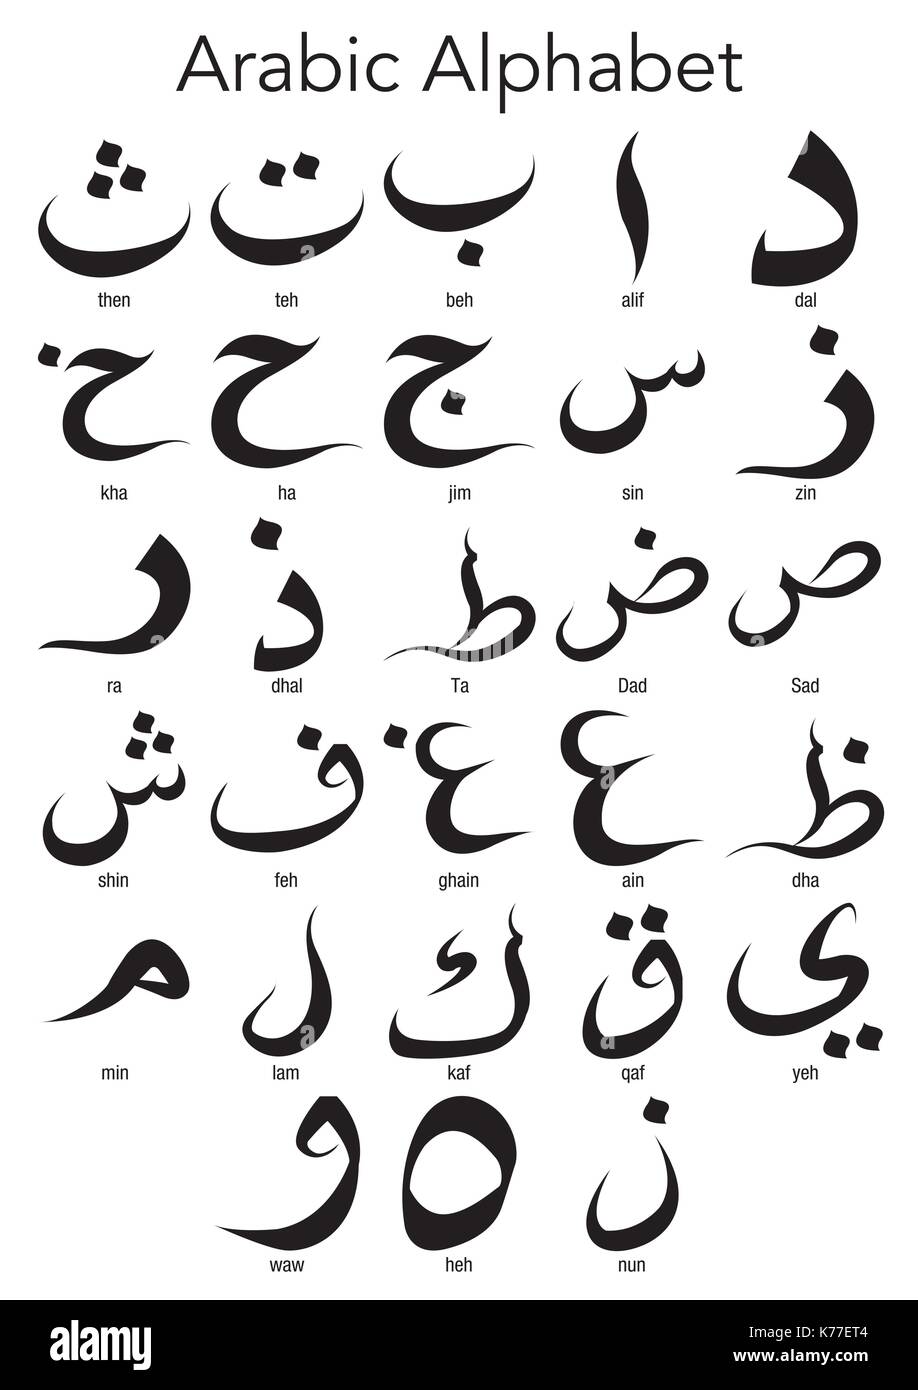 Arabic Alphabet
ث ت ب ا د
then teh beh alif dal
خ ح ج س ز
kha ha jim sin zin
ر ذ ط ض ص
ra dhal Ta Dad Sad
ش ف غ ع ظ
shin feh ghain ain dha
م ل ك ق ي
min lam kaf qaf yeh
و ه ن
waw heh nun
alamy stock photo
K77ET4
www.alamy.com